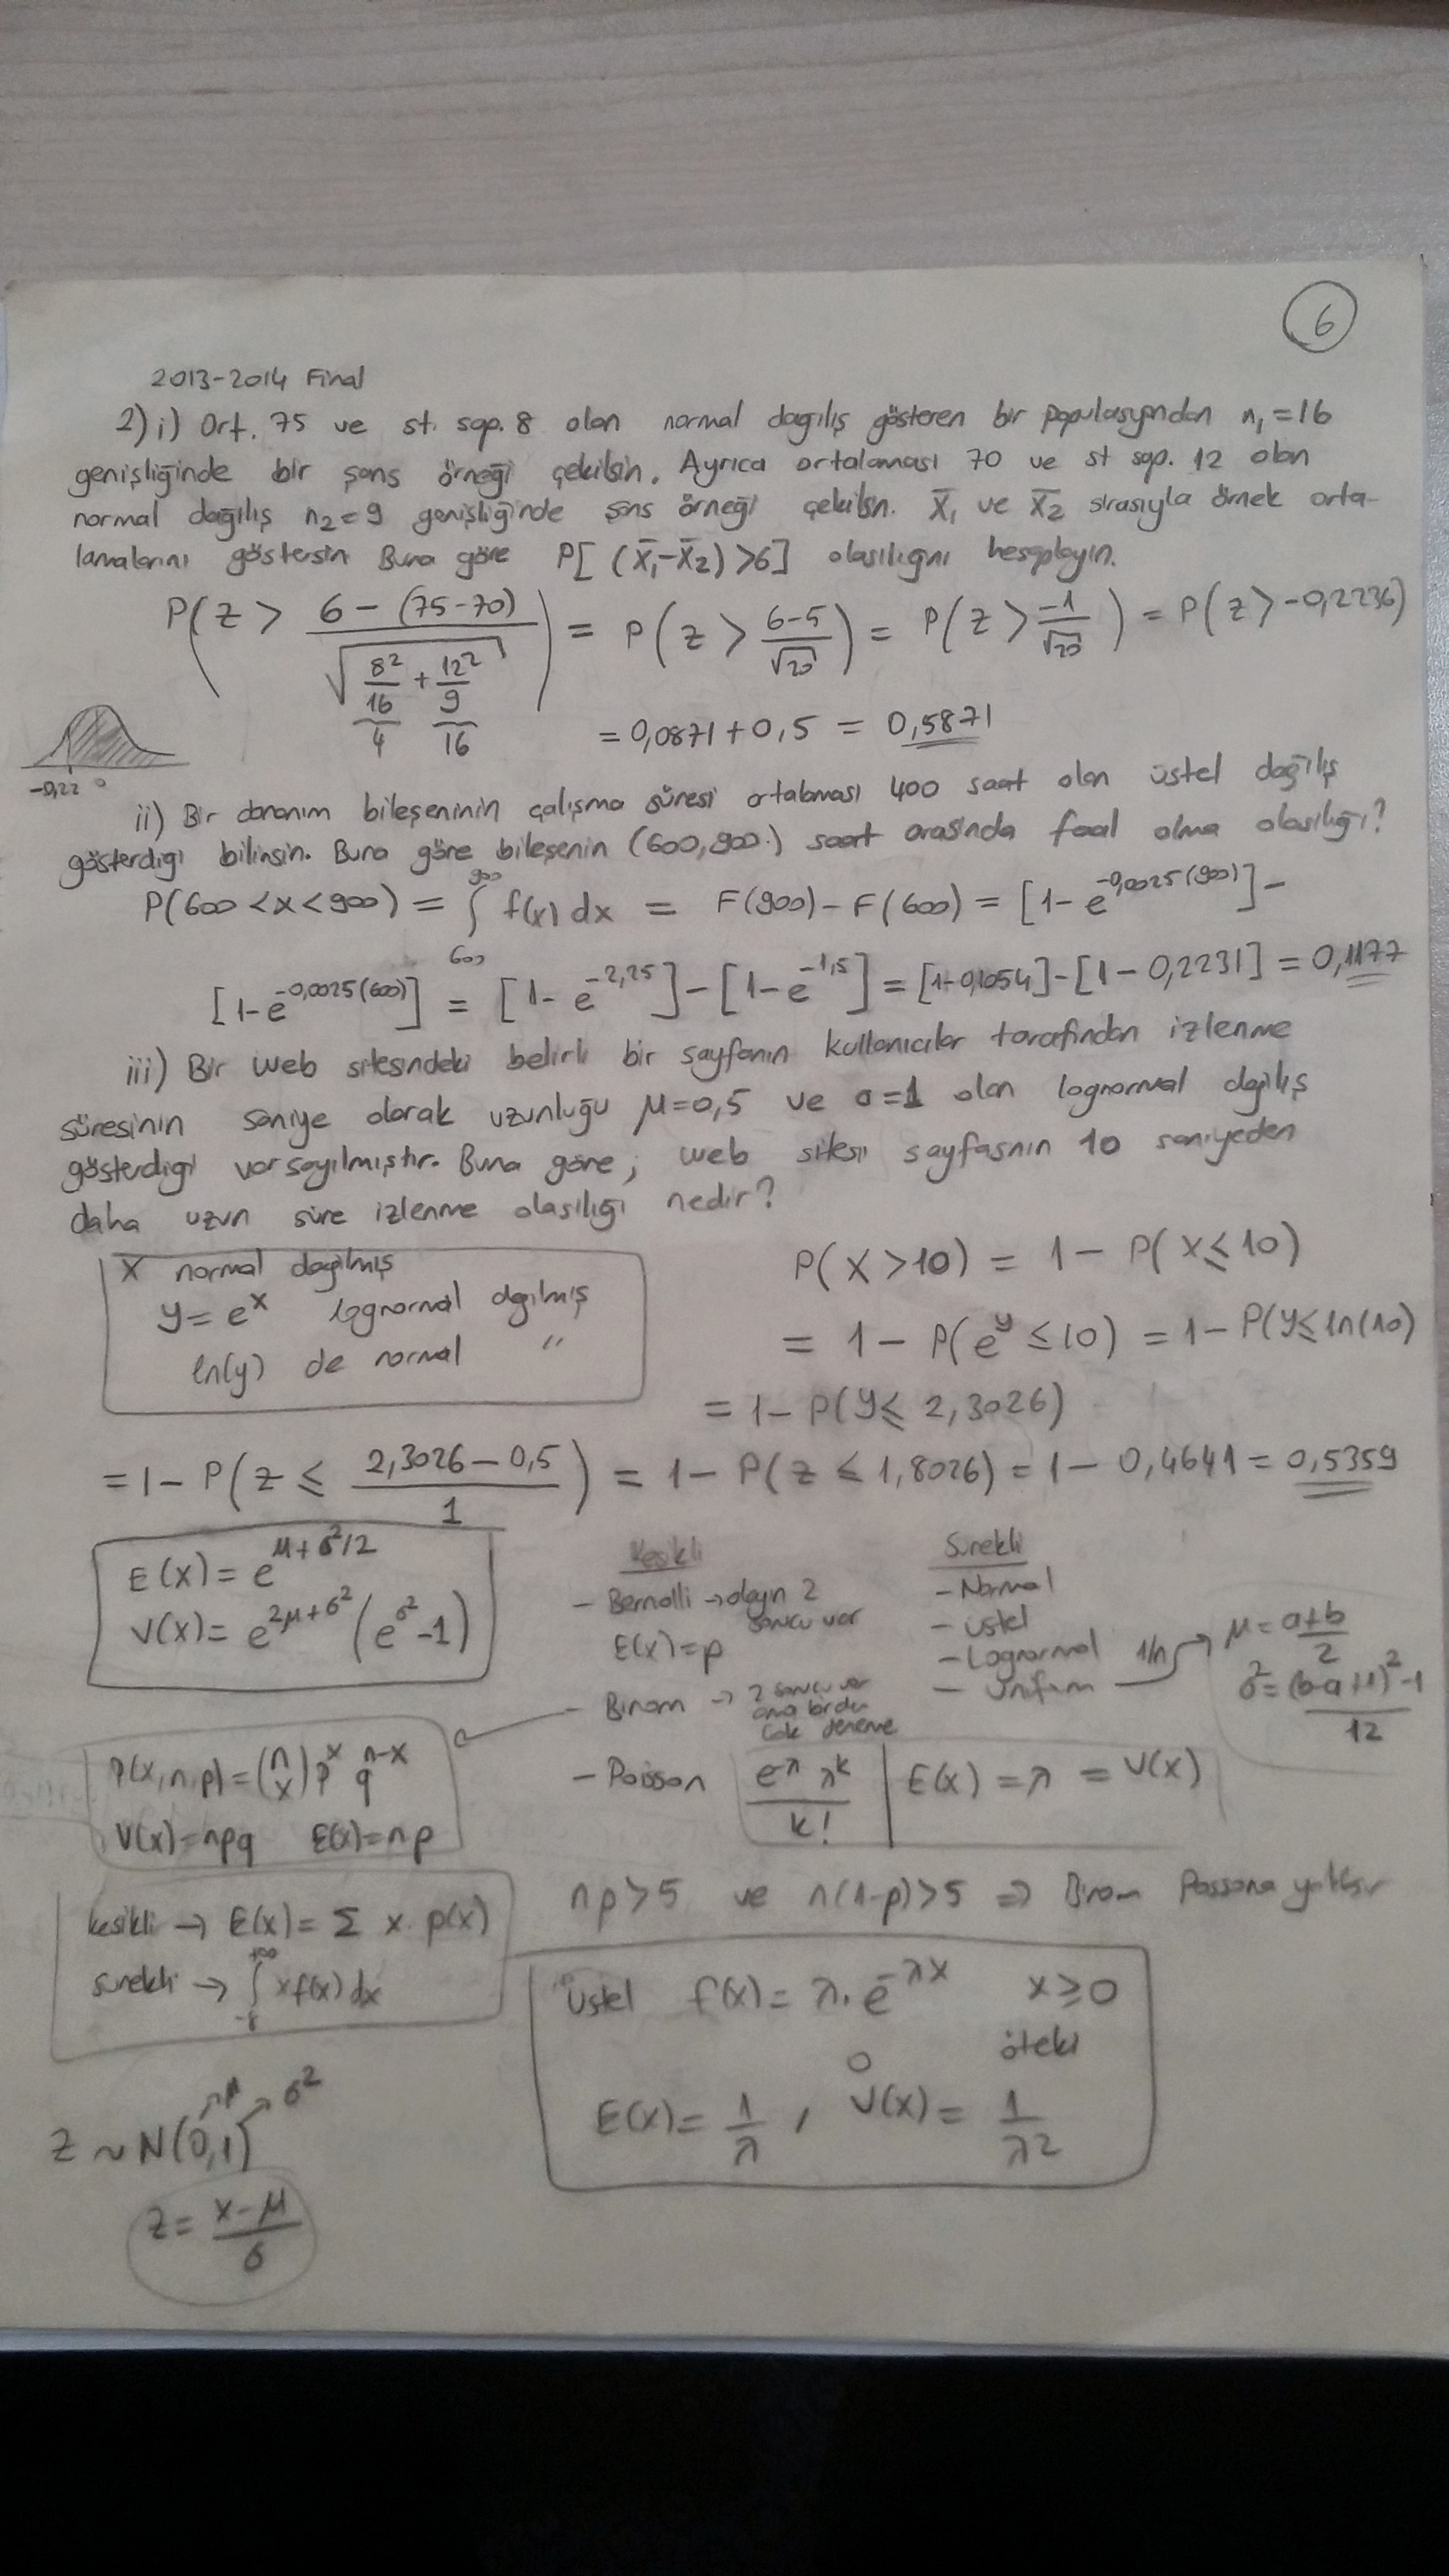 6
2013-2014 Final
2) i) Ort. 75 ve st. sap. 8 olan normal dağılış gösteren bir populasyondan n₁=16
genişliğinde bir şans örneği çekilsin. Ayrıca ortalaması 70 ve st sap. 12 olan
normal dağılış n₂=9 genişliğinde şans örneği çekilsin. X̄₁ ve X̄₂ sırasıyla örnek orta-
lamalarını göstersin Buna göre P[(X̄₁-X̄₂)>6] olasılığını hesaplayın.
P(z > (6-(75-70))/√(8²/16 + 12²/9)) = P(z > (6-5)/√20) = P(z > -1/√20) = P(z > -0,2236)
4 16
= 0,0871 + 0,5 = 0,5871
-0,22 0
ii) Bir donanım bileşeninin çalışma süresi ortalaması 400 saat olan üstel dağılış
gösterdiği bilinsin. Buna göre bileşenin (600,900.) saat arasında faal olma olasılığı?
P(600<x<900) = ∫₆₀₀⁹⁰⁰ f(x) dx = F(900) - F(600) = [1-e^-0,0025(900)] -
[1-e^-0,0025(600)] = [1-e^-2,25] - [1-e^-1,5] = [1-0,1054] - [1-0,2231] = 0,1177
iii) Bir web sitesindeki belirli bir sayfanın kullanıcılar tarafından izlenme
süresinin saniye olarak uzunluğu μ=0,5 ve σ=1 olan lognormal dağılış
gösterdiği varsayılmıştır. Buna göre; web sitesi sayfasının 10 saniyeden
daha uzun süre izlenme olasılığı nedir?
X normal dağılmış
y = e^x lognormal dağılmış
ln(y) de normal "
P(X>10) = 1 - P(X≤10)
= 1 - P(e^y ≤ 10) = 1 - P(y ≤ ln(10)
= 1 - P(y ≤ 2,3026)
= 1 - P(z ≤ (2,3026-0,5)/1) = 1 - P(z ≤ 1,8026) = 1 - 0,4641 = 0,5359
E(x) = e^μ+σ²/2
V(x) = e^2μ+σ² (e^σ² -1)
Kesikli
- Bernolli → olayın 2
sonucu var
E(x)=p
- Binom → 2 sonucu var
ama birden
çok deneme
- Poisson e^-λ λ^k / k! | E(x) = λ = V(x)
Sürekli
- Normal
- Üstel
- Lognormal
- Unifom 1/n → μ = (a+b)/2
σ² = ((b-a+1)²-1)/12
P(x,n,p) = (n x) p^x q^n-x
V(x)=npq E(x)=np
kesikli → E(x) = Σ x. p(x)
sürekli → ∫ xf(x) dx
+∞
np>5 ve n(1-p)>5 ⇒ Binom Possona yaklaşır
üstel f(x) = λ. e^-λx x≥0
0 öteki
E(x) = 1/λ , V(x) = 1/λ²
Z ~ N(0,1) → μ → σ²
z = (x-μ)/σ